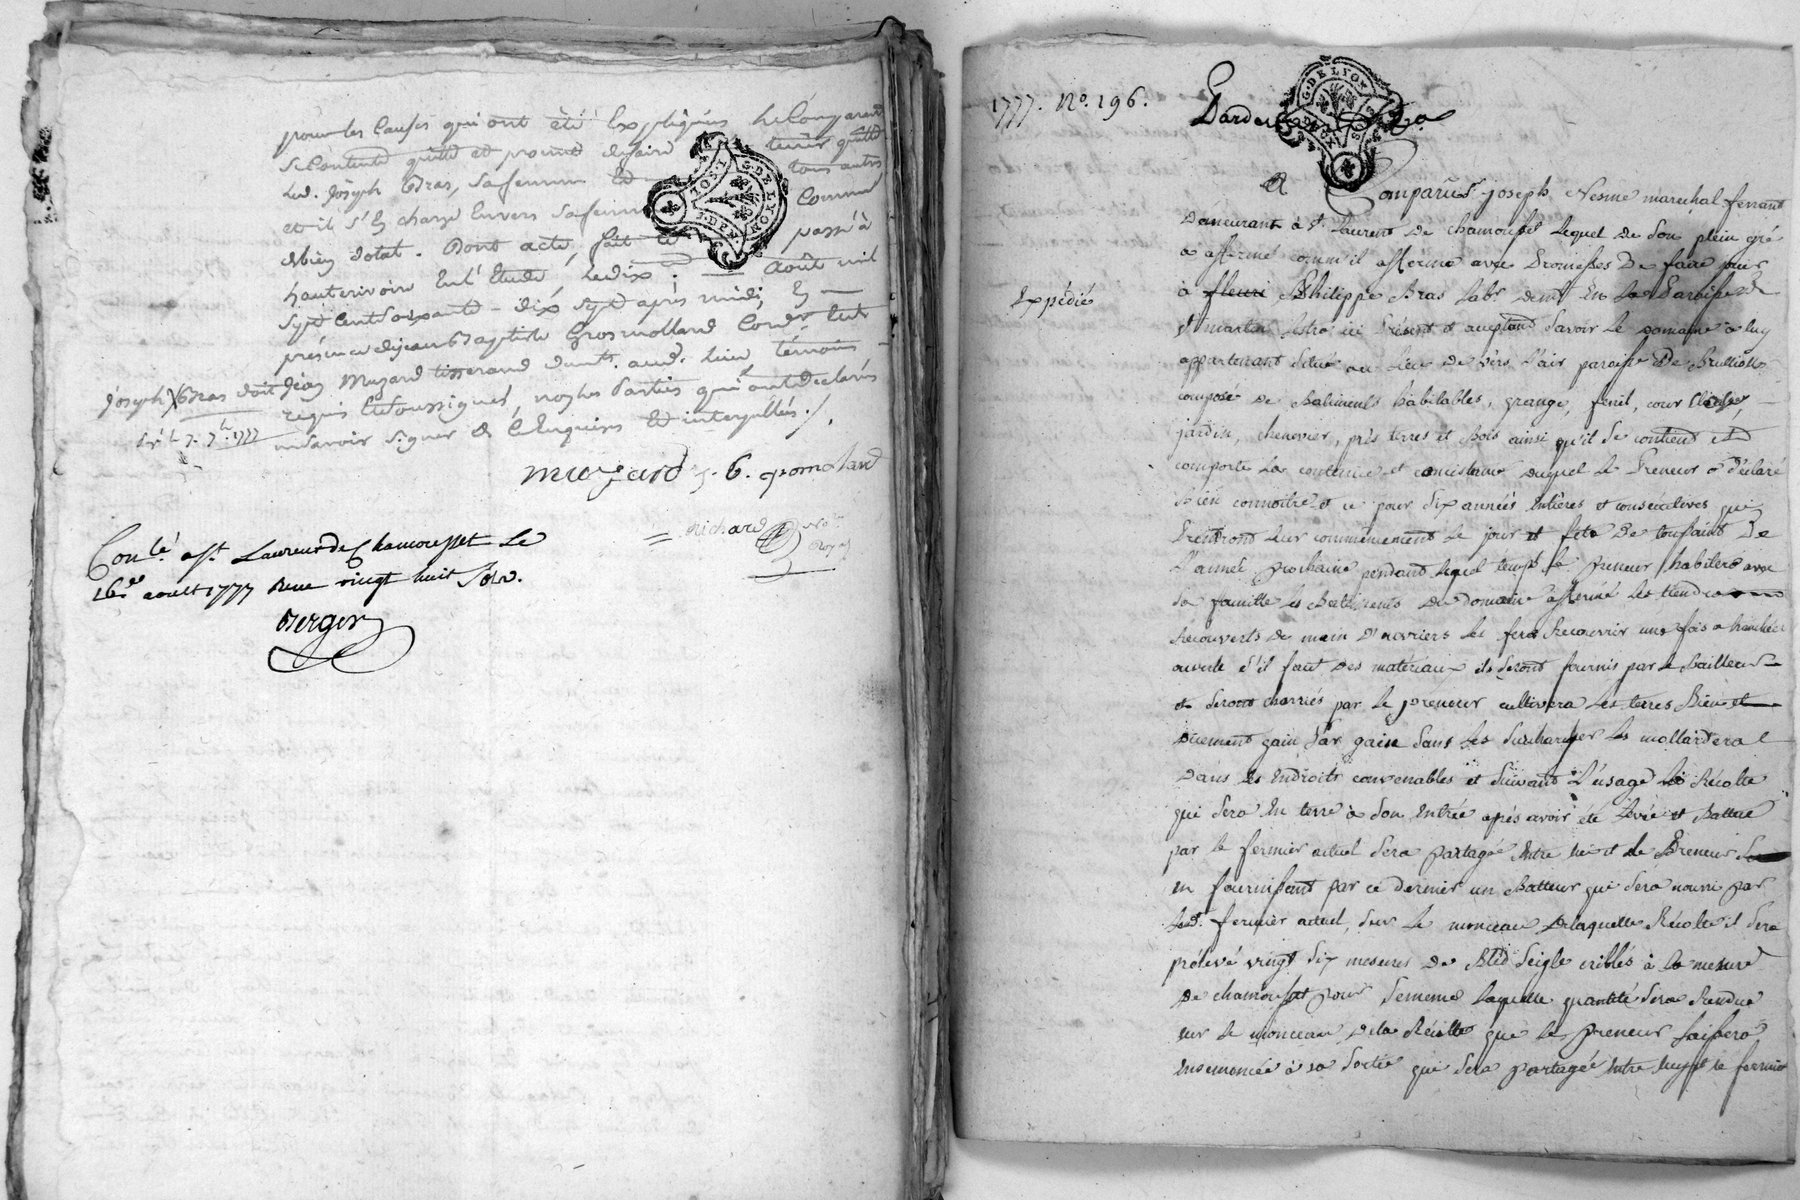 pour les causes qui ont été Expliquées le Comparant
se Contente quitte et promet de faire tenir quitte
led. Joseph Bras, sa femme et tous autres
et il s'En charge Envers sa femme comme
de bien dotal. Dont acte, fait et passé à
hauterivoire En l'Etude, le dix août mil
Sept Cent Soixante-dix Sept après midi En
présence de jean Baptiste Grosmolland Cord.r
jean Muzard tisserand demt. aud. lieu témoins
requis Et Soussignés, non les Parties qui ont déclarés
ne Savoir Signer de ce Enquises Et interpellées./.
joseph Bras doit
7. 7.bre 1777
muzard j. b. gromoland
Richard No.re
Royal
Conlé. à St Laurent de Chamousset Le
16e. aoust 1777 Reçu vingt huit Sols.
Berger
G. DE LYON
1777. No. 196.
Expédié
Comparut joseph Nesme marechal ferrant
Demeurant à St. Laurent De chamousset Lequel De Son plein gré
a affermé comm'il afferme avec Promesses De faire jouir
à fleuri Philippe Bras Lab.r demt. En La Paroisse de
St martin Lestra ici Présent et acceptant Savoir Le Domaine a luy
appartenant Situé au Lieu De vers L'air paroisse De Brullioles
composé De Batiments habitables, grange, fenil, cour
jardin, chenevier, près terres et Bois ainsi qu'il Se contient et
comporte La contenue et consistance Duquel Le Preneur a déclaré
Bien connoitre et ce pour Six années Entières et consécutives qui
Prendront Leur commencement Le jour et fête De toussaint De
L'année prochaine pendant lequel temps le Preneur habitera avec
Sa famille les Batiments Du domaine affermé Les tiendra
Recouverts De main D'ouvriers Les fera Recouvrir une fois a tranchée
ouverte s'il faut Des matériaux ils Seront fournis par le Bailleur
et Seront charriés par Le preneur cultivera Les terres Bien et
Duement gain par gain Sans Les Surcharger Les mollardera
Dans les Endroits convenables et Suivant L'usage La Récolte
qui Sera En terre a Son Entrée après avoir été Levée et Battue
par le fermier actuel Sera partagée Entre lui et le Preneur
en fournissant par ce dernier un Batteur qui Sera nourri par
Led. fermier actuel, Sur Le monceau De laquelle Récolte il Sera
prélevé vingt Six mesures De Bled Seigle cribles à La mesure
De chamousset pour Semence Laquelle quantité Sera Rendue
sur Le monceau De la Récolte que Le Preneur Laissera
Ensemencée à sa Sortie qui Sera partagée Entre luy et le fermier